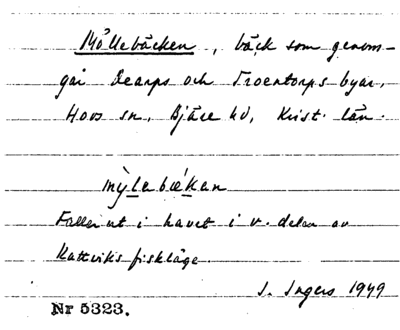 Möllebäcken, bäck som genom-
går Dearps och Troentorps byar,
Hovs sn, Bjäre hd, Krist. län.
mỳlebæ̀ken
Faller ut i havet i v. delen av
Kattviks fiskläge.
I. Ingers 1949
Nr 5323.